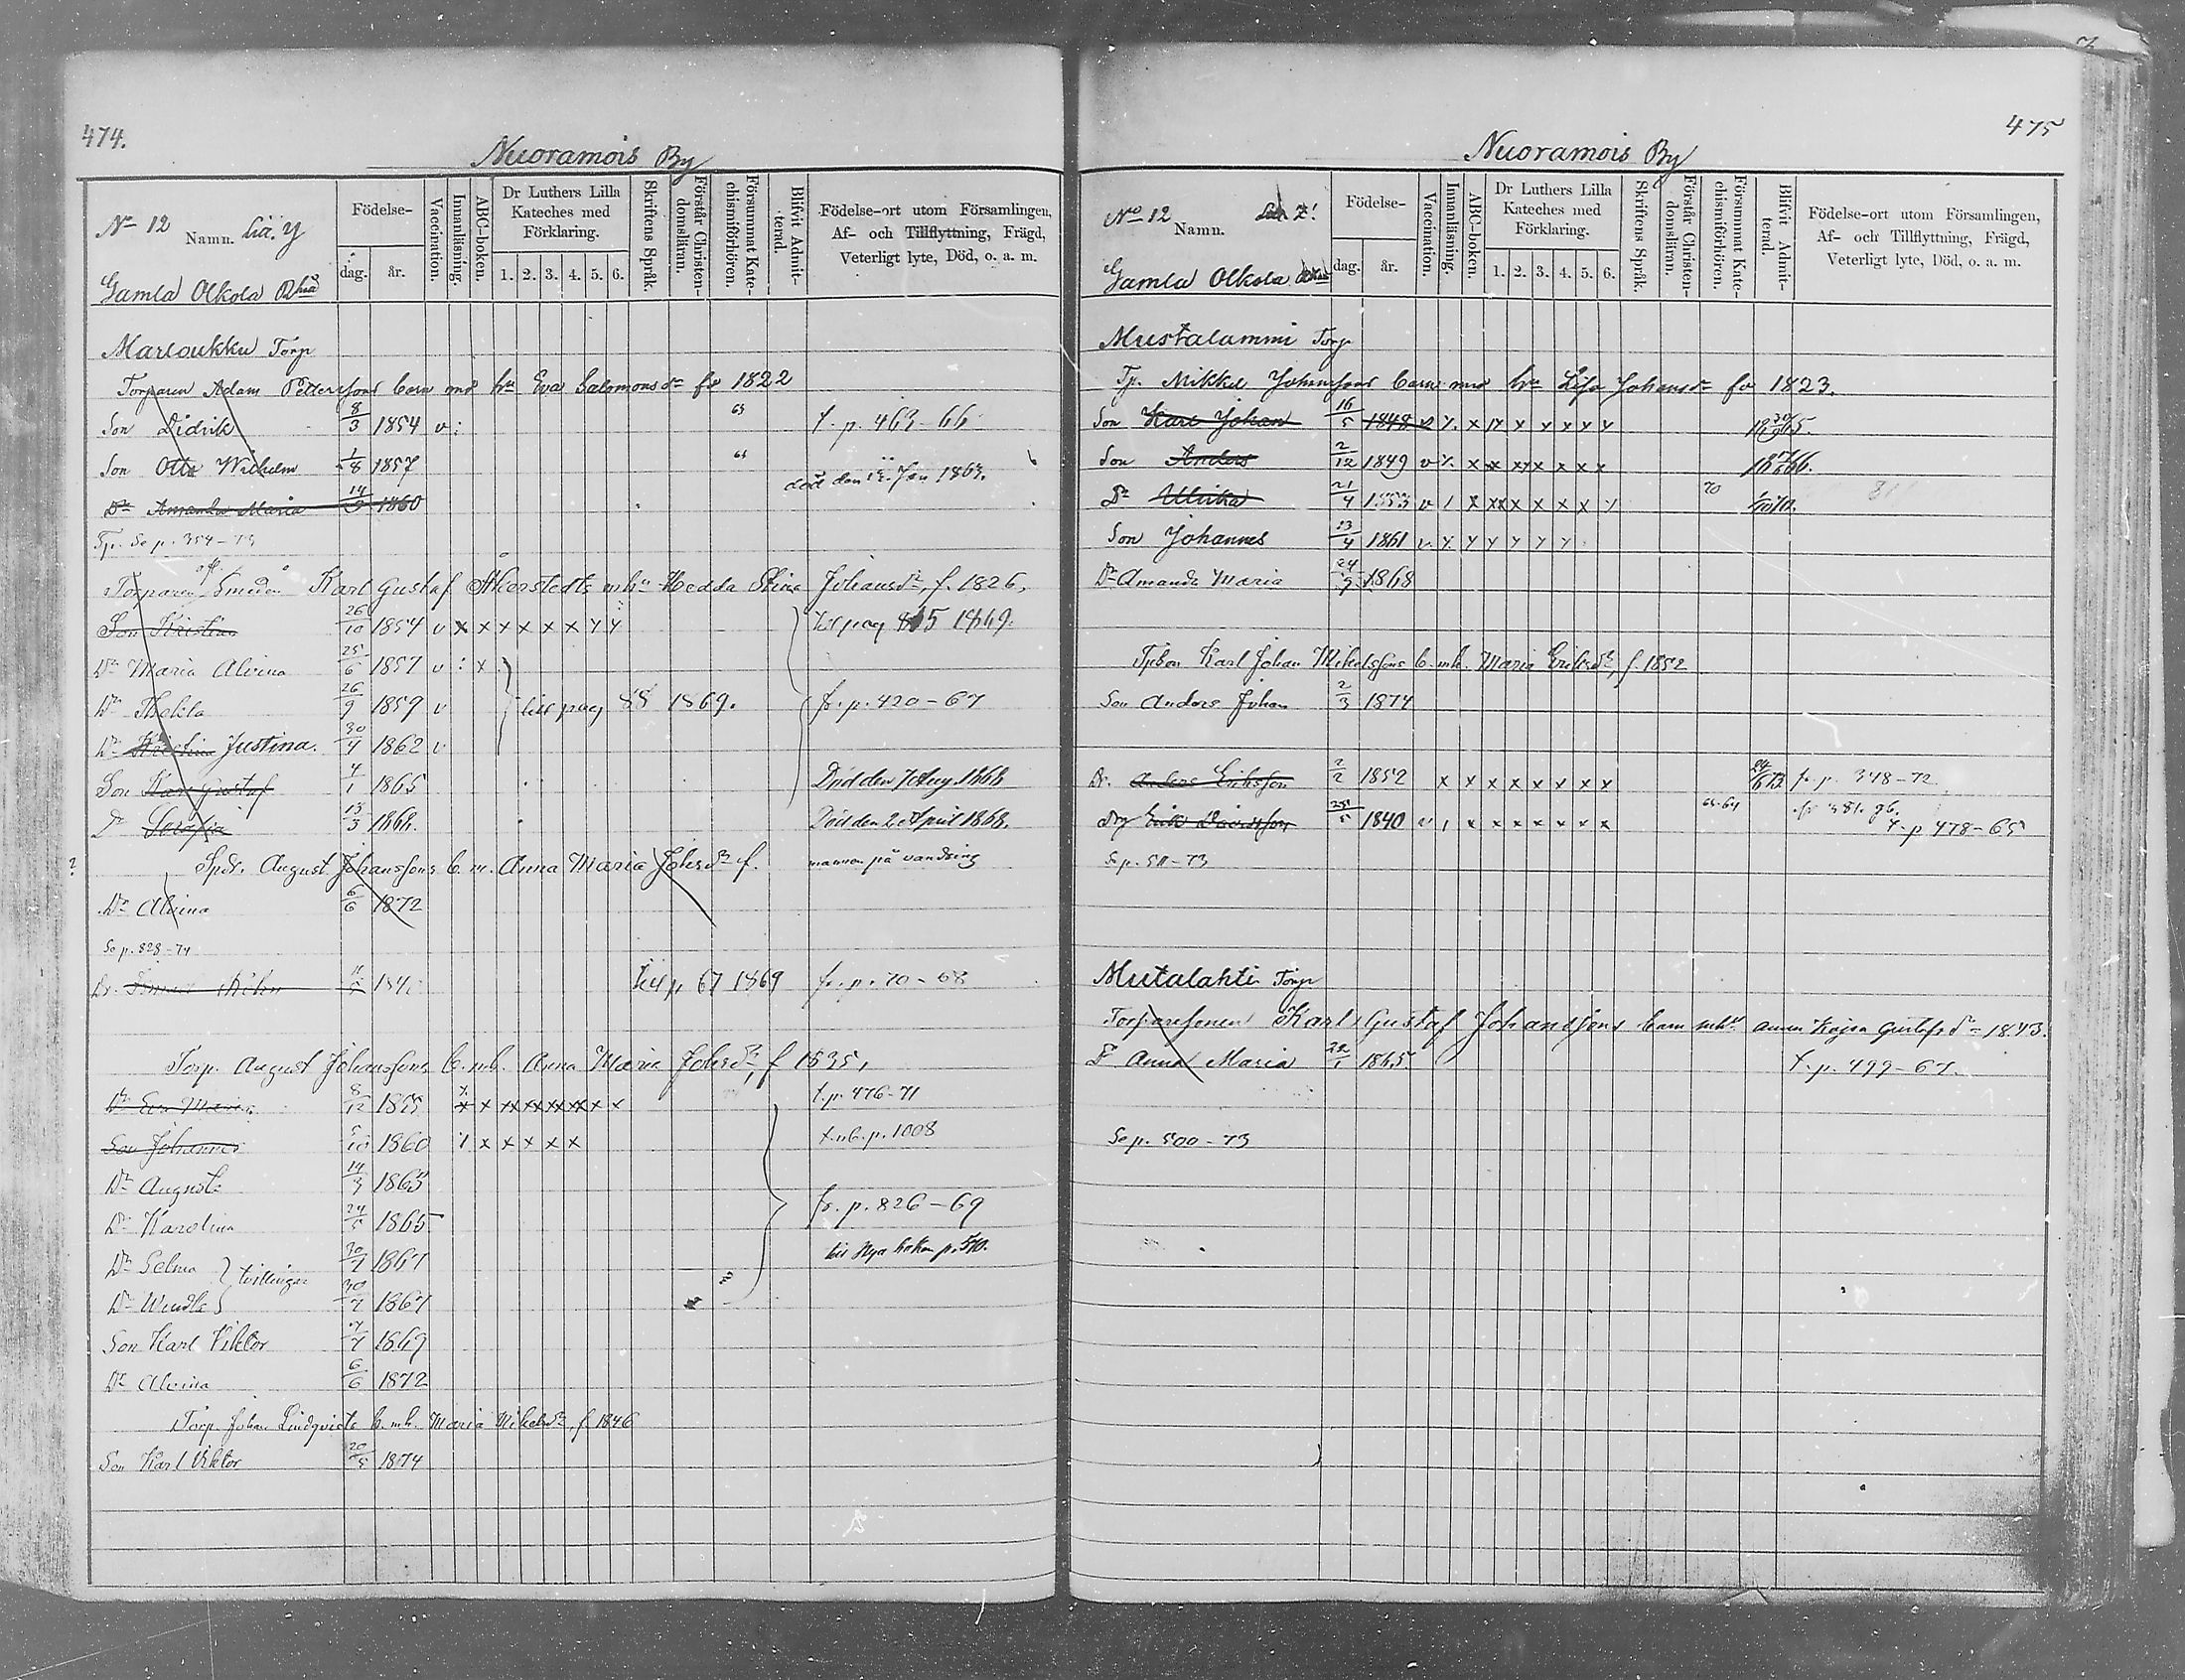 474.
Nuoramois By
No 12 Namn. Litt. Y
Gamla Olkola
Födelse-
dag. år.
Vaccination.
Innanläsning.
ABC-boken.
Dr Luthers Lilla Kateches med Förklaring.
1. 2. 3. 4. 5. 6.
Skriftens Språk.
Förstår Christen-domsläran.
Försummat Kate-chismiförhören.
Blifvit Admit-terad.
Födelse-ort utom Församlingen, Af- och Tillflyttning, Frägd, Veterligt lyte, Död, o. a. m.
Torp
Torparen Adam Pettersfons barn med hu Eva Salomonsdr fö 1822
Son Didrik 8/3 1854 v : 65 f. p. 463-66
Son Otto Wilhelm 1/8 1857 död den Jan 1863.
Dr Amanda Maria 14/9 1860
Tp. Se p. 354-73
Torparen Smeden Karl Gustaf Åkerstedts m hu Hedda Stina Johansdr, f. 1826,
Son Kristian 26/10 1854 v x x x x x x y y till pag 1869.
Dr Maria Alvina 25/6 1857 v : x
Dr Thekla 26/9 1859 v till pag 88 1869. fr. p. 420-67
Dr Kristina Justina. 30/4 1862 v
Son Karl Gustaf 4/1 1865 Död den 7 Aug 1868
Dr Serafia 13/3 1868. Död den 2 April 1868.
? Spdr. August Johansfons b. m. Anna Maria Johsdr f. mannen på vandring
Dr Alvina 6/6 1872
Se p. 828-74
Dr. till p. 67 1869 fr. p. 70-68
Torp. August Johansfons b. mh. Anna Maria Johsdr, f 1835,
Dr Eva Maria 8/12 1855 f. p. 476-71
Son Johannes 5/10 1860 y x x x x x f. nb. p. 1008
Dr Augusta 14/3 1863
Dr Karolina 24/5 1865 fr. p. 826-69
Dr Selma } tvillingar 30/7 1867 till Nya boken p. 510.
Dr Wendla 30/7 1867
Son Karl Viktor 7/7 1869
Dr Alvina 6/6 1872
Torp. Johan Lindqvists b. mh. Maria Mikelsdr, f. 1846
Son Karl Viktor 20/5 1874
475
Nuoramois By
No 12 Namn. Z!
Gamla Olkola
Födelse-
dag. år.
Vaccination.
Innanläsning.
ABC-boken.
Dr Luthers Lilla Kateches med Förklaring.
1. 2. 3. 4. 5. 6.
Skriftens Språk.
Förstår Christen-domsläran.
Försummat Kate-chismiförhören.
Blifvit Admit-terad.
Födelse-ort utom Församlingen, Af- och Tillflyttning, Frägd, Veterligt lyte, Död, o. a. m.
Mustalammi Torp
Tp. Mikkel Johansfons barn med hu Lisa Johansdr fö 1823.
Son Karl Johan 16/5 1848
Son Anders 2/12 1849
Dr Ulrika 21/4 1853 70
Son Johannes 13/4 1861 v y y y y y y
Dr Amanda Maria 24/9 1868
Tpson Karl Johan Mikelsfons b. mh. Maria Eriksdr, f 1852
Son Anders Johan 2/3 1874
Dr. Anders Eriksfon 2/2 1852 x x x x x x x x f. p. 348-72
Drg Erik Davidsfon 25/5 1840 f. p 478-65
Se p. 511-73
Mutalahti Torp
Torparesonen Karl Gustaf Johansfons barn mhu annan Kajsa Gustafsdr 1843.
Dr Anna Maria 22/1 1865. f. p. 499-67.
Se p. 500-73